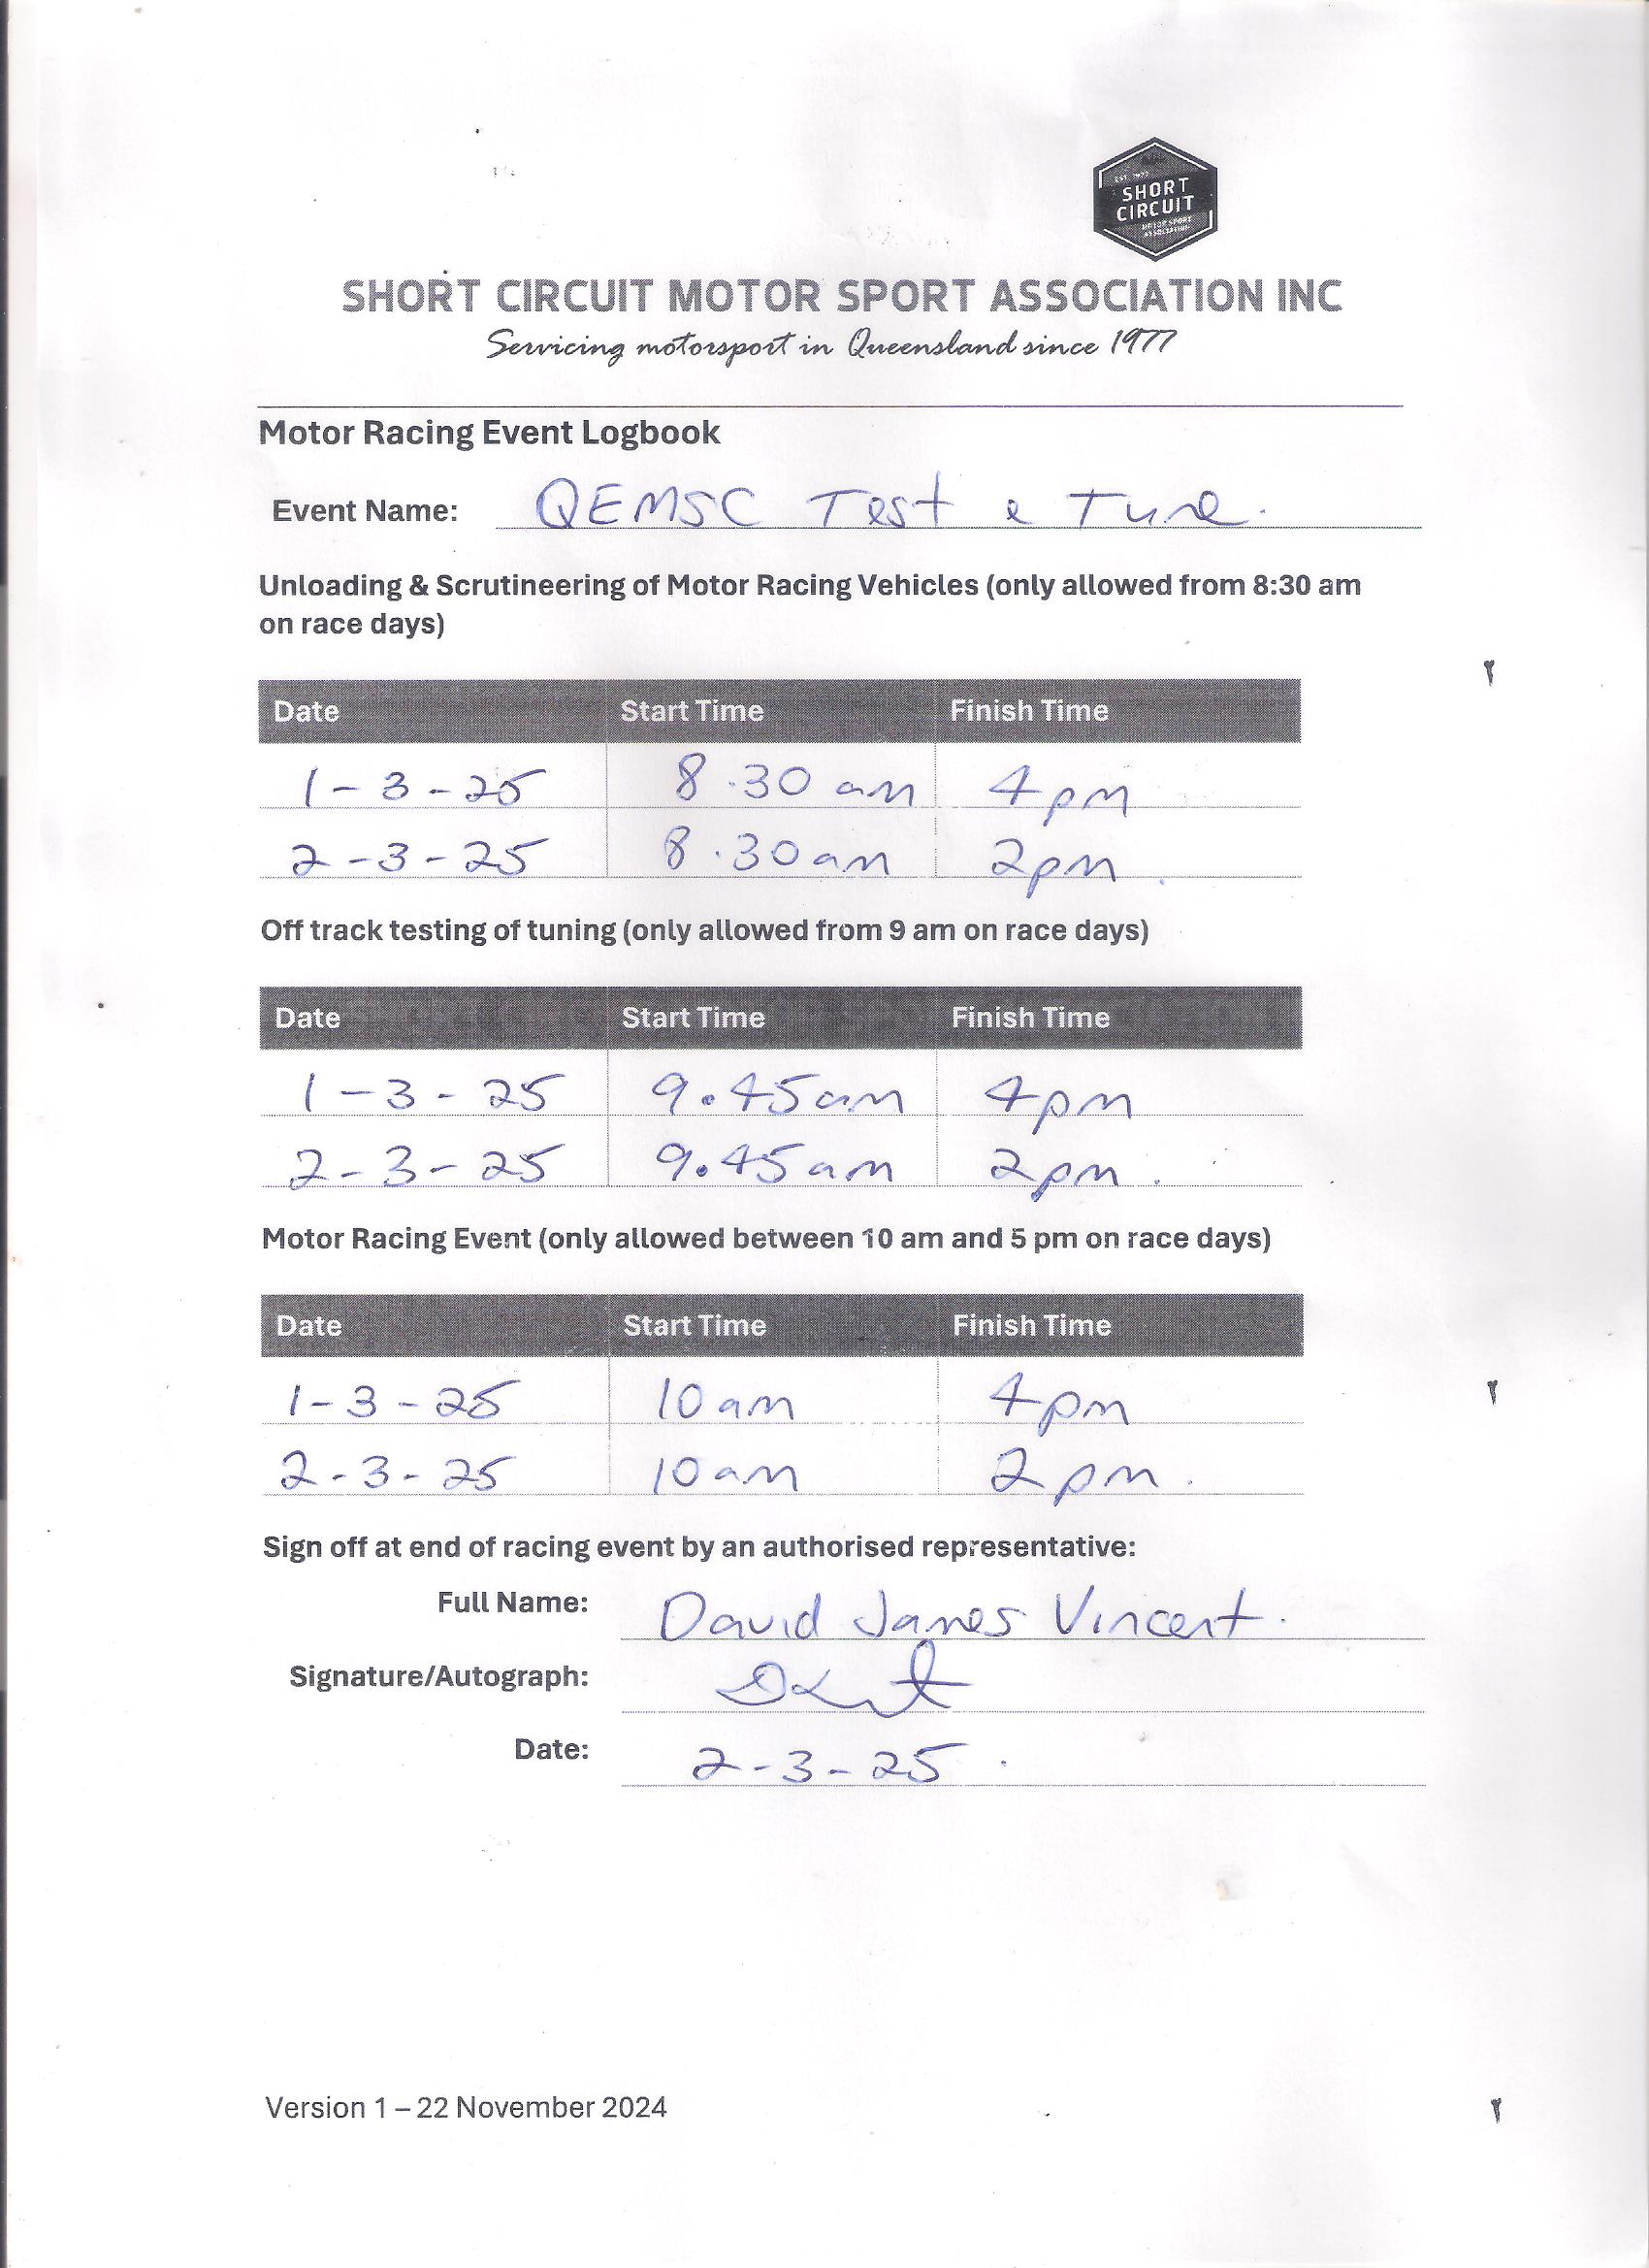 EST. 1977
SHORT
CIRCUIT
MOTOR SPORT
ASSOCIATION
SHORT CIRCUIT MOTOR SPORT ASSOCIATION INC
Servicing motorsport in Queensland since 1977
Motor Racing Event Logbook
Event Name: QEMSC Test & Tune.
Unloading & Scrutineering of Motor Racing Vehicles (only allowed from 8:30 am
on race days)
Date Start Time Finish Time
1-3-25 8.30 am 4pm
2-3-25 8.30am 2pm.
Off track testing of tuning (only allowed from 9 am on race days)
Date Start Time Finish Time
1-3-25 9.45am 4pm
2-3-25 9.45am 2pm.
Motor Racing Event (only allowed between 10 am and 5 pm on race days)
Date Start Time Finish Time
1-3-25 10am 4pm
2-3-25 10am 2pm.
Sign off at end of racing event by an authorised representative:
Full Name: David James Vincent.
Signature/Autograph:
Date: 2-3-25.
Version 1 – 22 November 2024